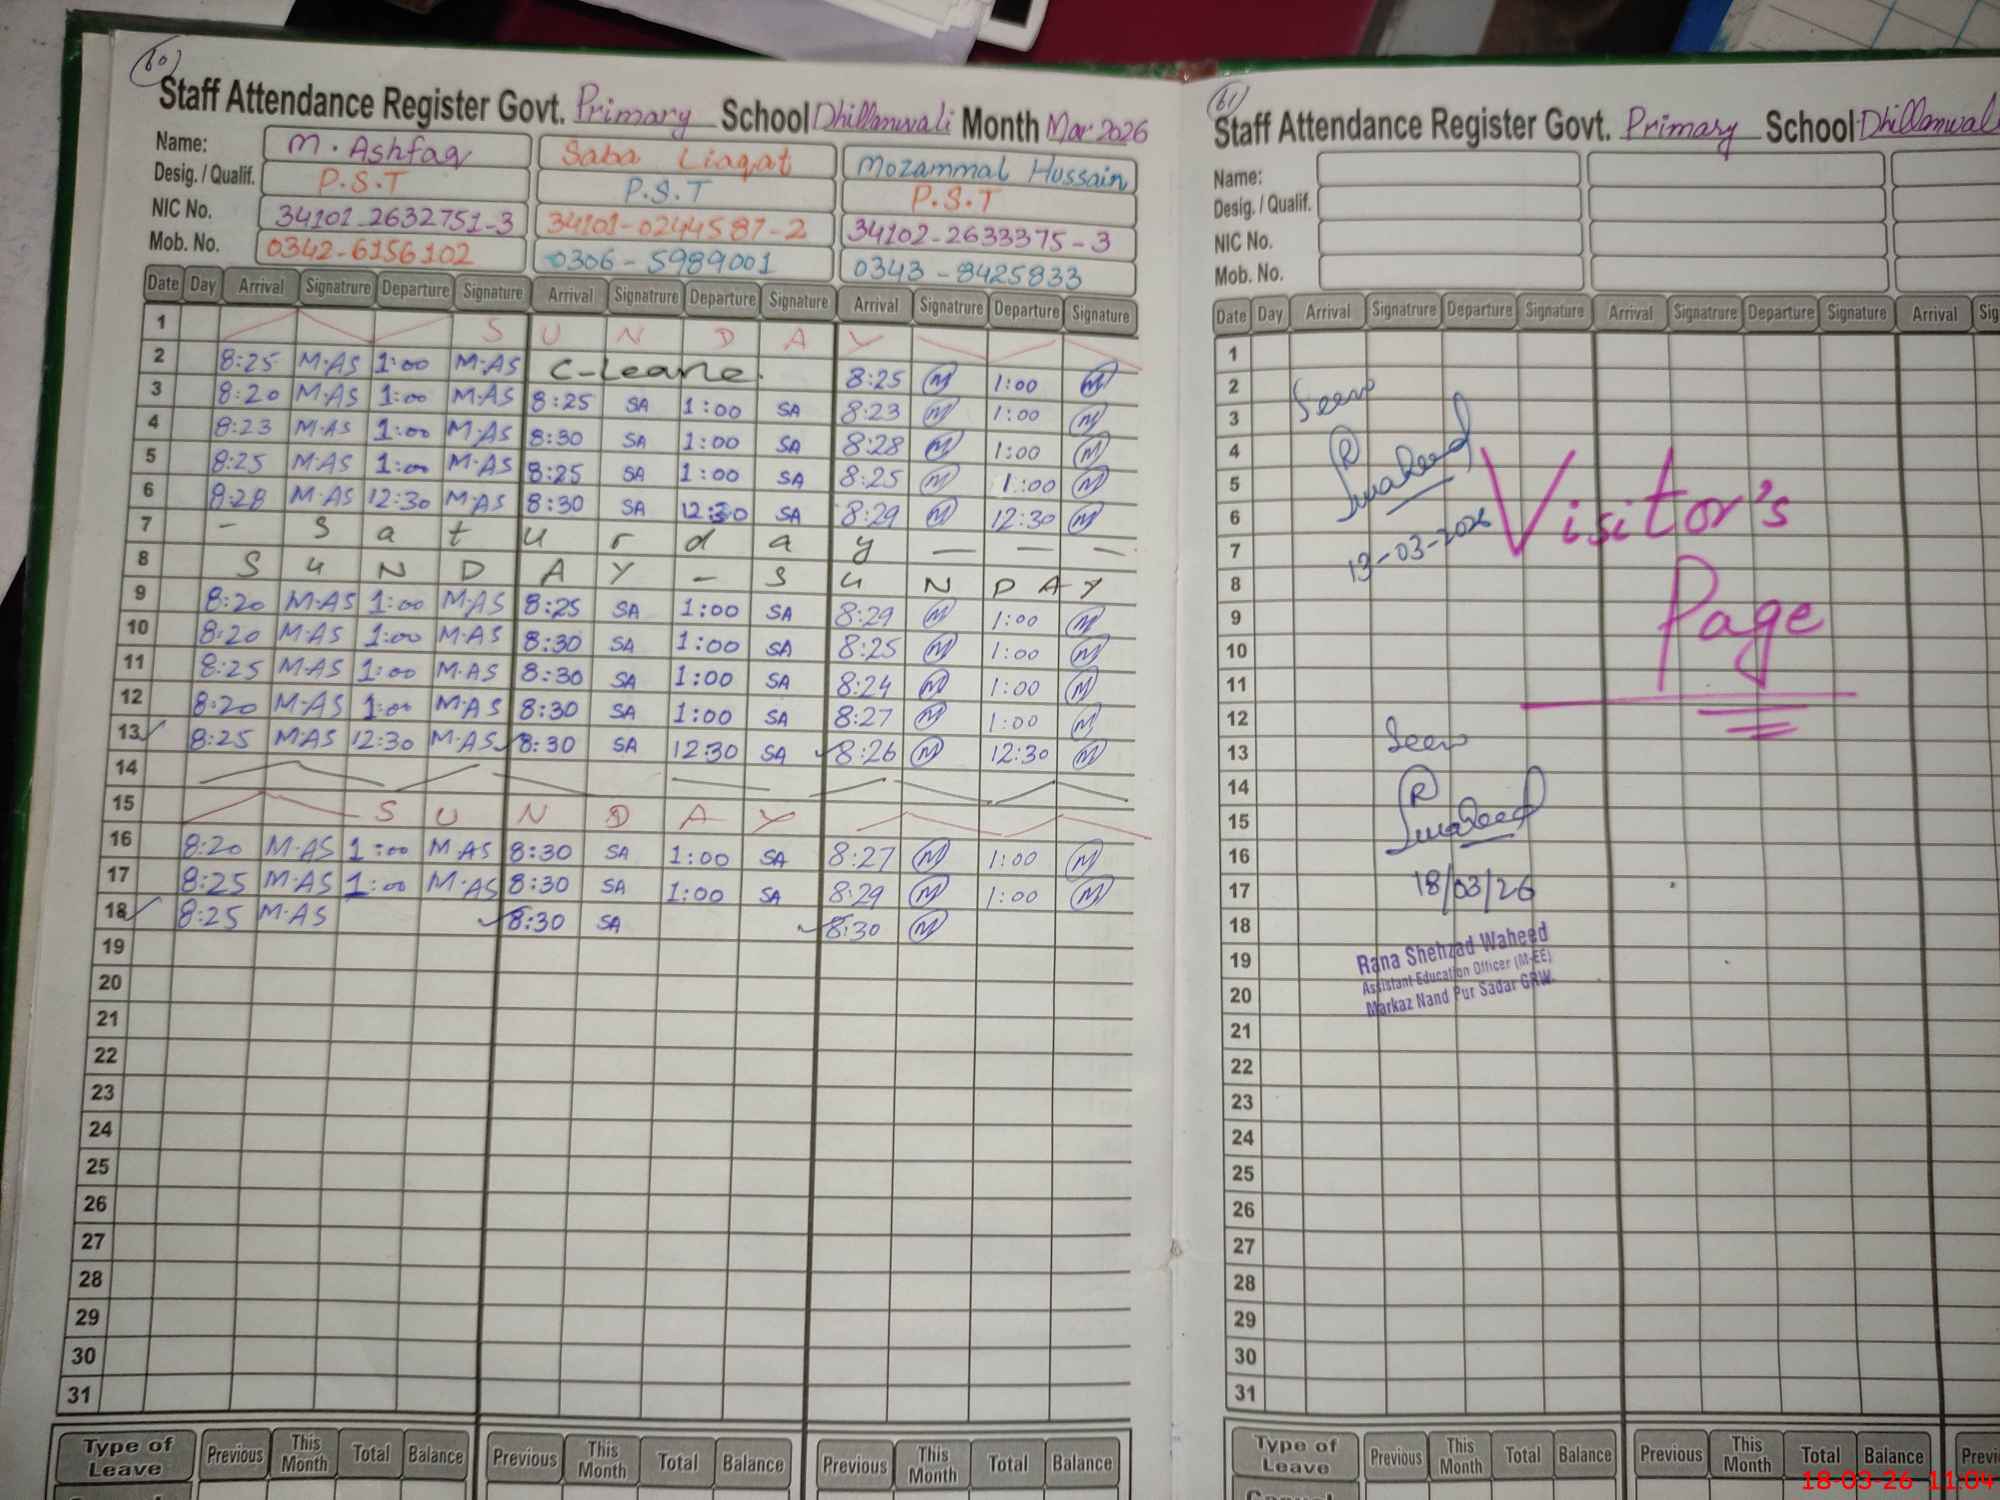 60
Staff Attendance Register Govt. Primary School Dhillanwali Month Mar 2026
Name: M. Ashfaq Saba Liaqat Mozammal Hussain
Desig. / Qualif. P.S.T P.S.T P.S.T
NIC No. 34101-2632751-3 34101-0244587-2 34102-2633375-3
Mob. No. 0342-6156102 0306-5989001 0343-8425833
Date Day Arrival Signatrure Departure Signature Arrival Signatrure Departure Signature Arrival Signatrure Departure Signature
1 S U N D A Y
2 8:25 M.AS 1:00 M.AS C-Leave. 8:25 M 1:00 M
3 8:20 M.AS 1:00 M.AS 8:25 SA 1:00 SA 8:23 M 1:00 M
4 8:23 M.AS 1:00 M.AS 8:30 SA 1:00 SA 8:28 M 1:00 M
5 8:25 M.AS 1:00 M.AS 8:25 SA 1:00 SA 8:25 M 1:00 M
6 8:28 M.AS 12:30 M.AS 8:30 SA 12:30 SA 8:29 M 12:30 M
7 - S a t u r d a y - - -
8 S u N D A Y - S u N D A Y
9 8:20 M.AS 1:00 M.AS 8:25 SA 1:00 SA 8:29 M 1:00 M
10 8:20 M.AS 1:00 M.AS 8:30 SA 1:00 SA 8:25 M 1:00 M
11 8:25 M.AS 1:00 M.AS 8:30 SA 1:00 SA 8:24 M 1:00 M
12 8:20 M.AS 1:00 M.AS 8:30 SA 1:00 SA 8:27 M 1:00 M
13 8:25 M.AS 12:30 M.AS 8:30 SA 12:30 SA 8:26 M 12:30 M
14
15 S U N D A Y
16 8:20 M.AS 1:00 M.AS 8:30 SA 1:00 SA 8:27 M 1:00 M
17 8:25 M.AS 1:00 M.AS 8:30 SA 1:00 SA 8:29 M 1:00 M
18 8:25 M.AS 8:30 SA 8:30 M
19
20
21
22
23
24
25
26
27
28
29
30
31
Type of Leave Previous This Month Total Balance Previous This Month Total Balance Previous This Month Total Balance
61
Staff Attendance Register Govt. Primary School Dhillanwal
Name:
Desig. / Qualif.
NIC No.
Mob. No.
Date Day Arrival Signatrure Departure Signature Arrival Signatrure Departure Signature Arrival Sig
1
2 Seen
3
4
5
6 Visitor's
7 13-03-2026
8
9 Page
10
11
12
13 Seen
14
15
16
17 18/03/26
18
19 Rana Shehzad Waheed
Assistant Education Officer (M-EE)
20 Markaz Nand Pur Sadar GRW.
21
22
23
24
25
26
27
28
29
30
31
Type of Leave Previous This Month Total Balance Previous This Month Total Balance
18-03-26 11:04